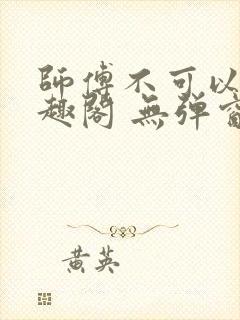 師傅不可以
趣閣 無彈窗
黃英